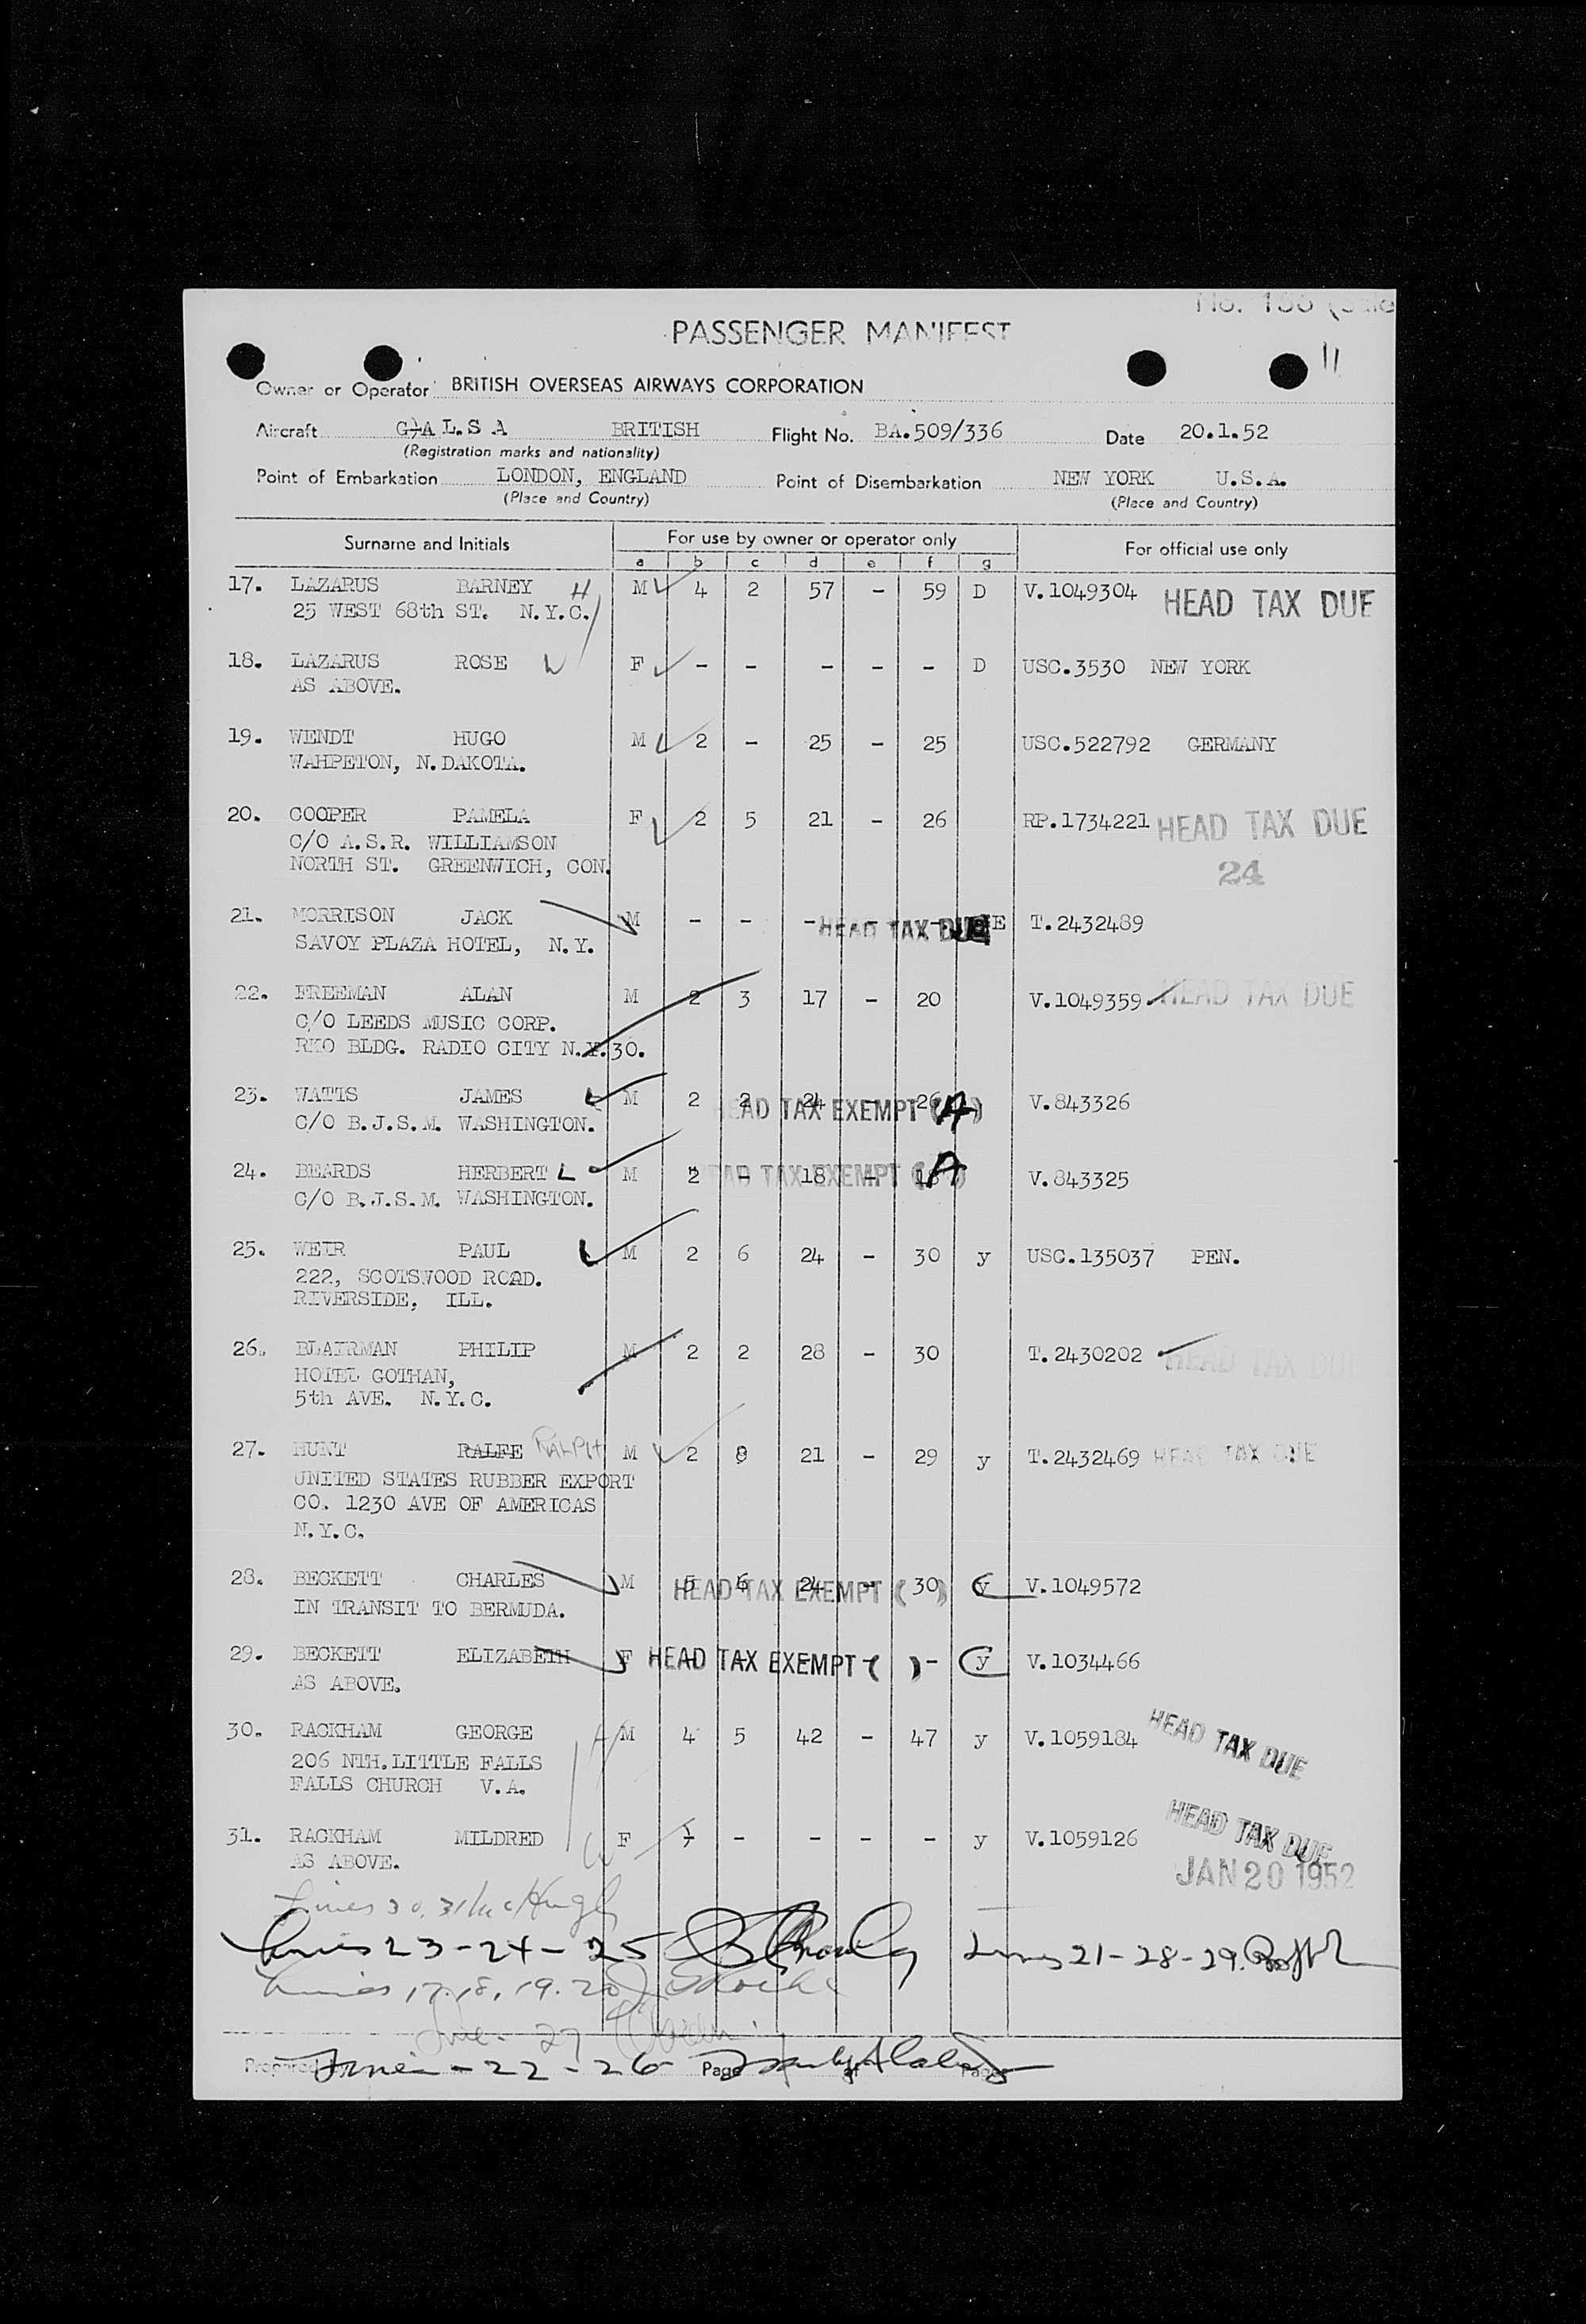 PASSENGER MANIFEST
11
Owner or Operator BRITISH OVERSEAS AIRWAYS CORPORATION
Aircraft G-ALSA BRITISH Flight No. BA.509/336 Date 20.1.52
(Registration marks and nationality)
Point of Embarkation LONDON, ENGLAND Point of Disembarkation NEW YORK U.S.A.
(Place and Country) (Place and Country)
Surname and Initials For use by owner or operator only For official use only
a b c d e f g
17. LAZARUS BARNEY H M 4 2 57 - 59 D V.1049304 HEAD TAX DUE
25 WEST 68th ST. N.Y.C.
18. LAZARUS ROSE W F - - - - - D USC.3530 NEW YORK
AS ABOVE.
19. WENDT HUGO M 2 - 25 - 25 USC.522792 GERMANY
WAHPETON, N.DAKOTA.
20. COOPER PAMELA F 2 5 21 - 26 RP.1734221 HEAD TAX DUE
C/O A.S.R. WILLIAMSON
NORTH ST. GREENWICH, CON. 24
21. MORRISON JACK M - - - HEAD TAX DUE T.2432489
SAVOY PLAZA HOTEL, N.Y.
22. FREEMAN ALAN M 2 3 17 - 20 V.1049359 HEAD TAX DUE
C/O LEEDS MUSIC CORP.
RKO BLDG. RADIO CITY N.Y.30.
23. WATTS JAMES M 2 2 24 - 26 HEAD TAX EXEMPT (A) V.843326
C/O B.J.S.M. WASHINGTON.
24. BEARDS HERBERT L M 2 - 18 - 18 HEAD TAX EXEMPT (A) V.843325
C/O B.J.S.M. WASHINGTON.
25. WEIR PAUL M 2 6 24 - 30 y USC.135037 PEN.
222, SCOTSWOOD ROAD.
RIVERSIDE, ILL.
26. BLAIRMAN PHILIP M 2 2 28 - 30 T.2430202 HEAD TAX DUE
HOTEL GOTHAN,
5th AVE. N.Y.C.
27. HUNT RALFE RALPH M 2 8 21 - 29 y T.2432469 HEAD TAX DUE
UNITED STATES RUBBER EXPORT
CO. 1230 AVE OF AMERICAS
N.Y.C.
28. BECKETT CHARLES M 5 6 24 - 30 y HEAD TAX EXEMPT ( ) V.1049572
IN TRANSIT TO BERMUDA.
29. BECKETT ELIZABETH F - - - - - y HEAD TAX EXEMPT ( ) V.1034466
AS ABOVE.
30. RACKHAM GEORGE H M 4 5 42 - 47 y V.1059184 HEAD TAX DUE
206 NTH.LITTLE FALLS
FALLS CHURCH V.A.
31. RACKHAM MILDRED W F - - - - y V.1059126 HEAD TAX DUE
AS ABOVE. JAN 20 1952
Lines 30, 31
Lines 23-24-25 Lines 21-28-29
Lines 17, 18, 19, 20
Line 27
Prepared Lines-22-26 Page of Pages